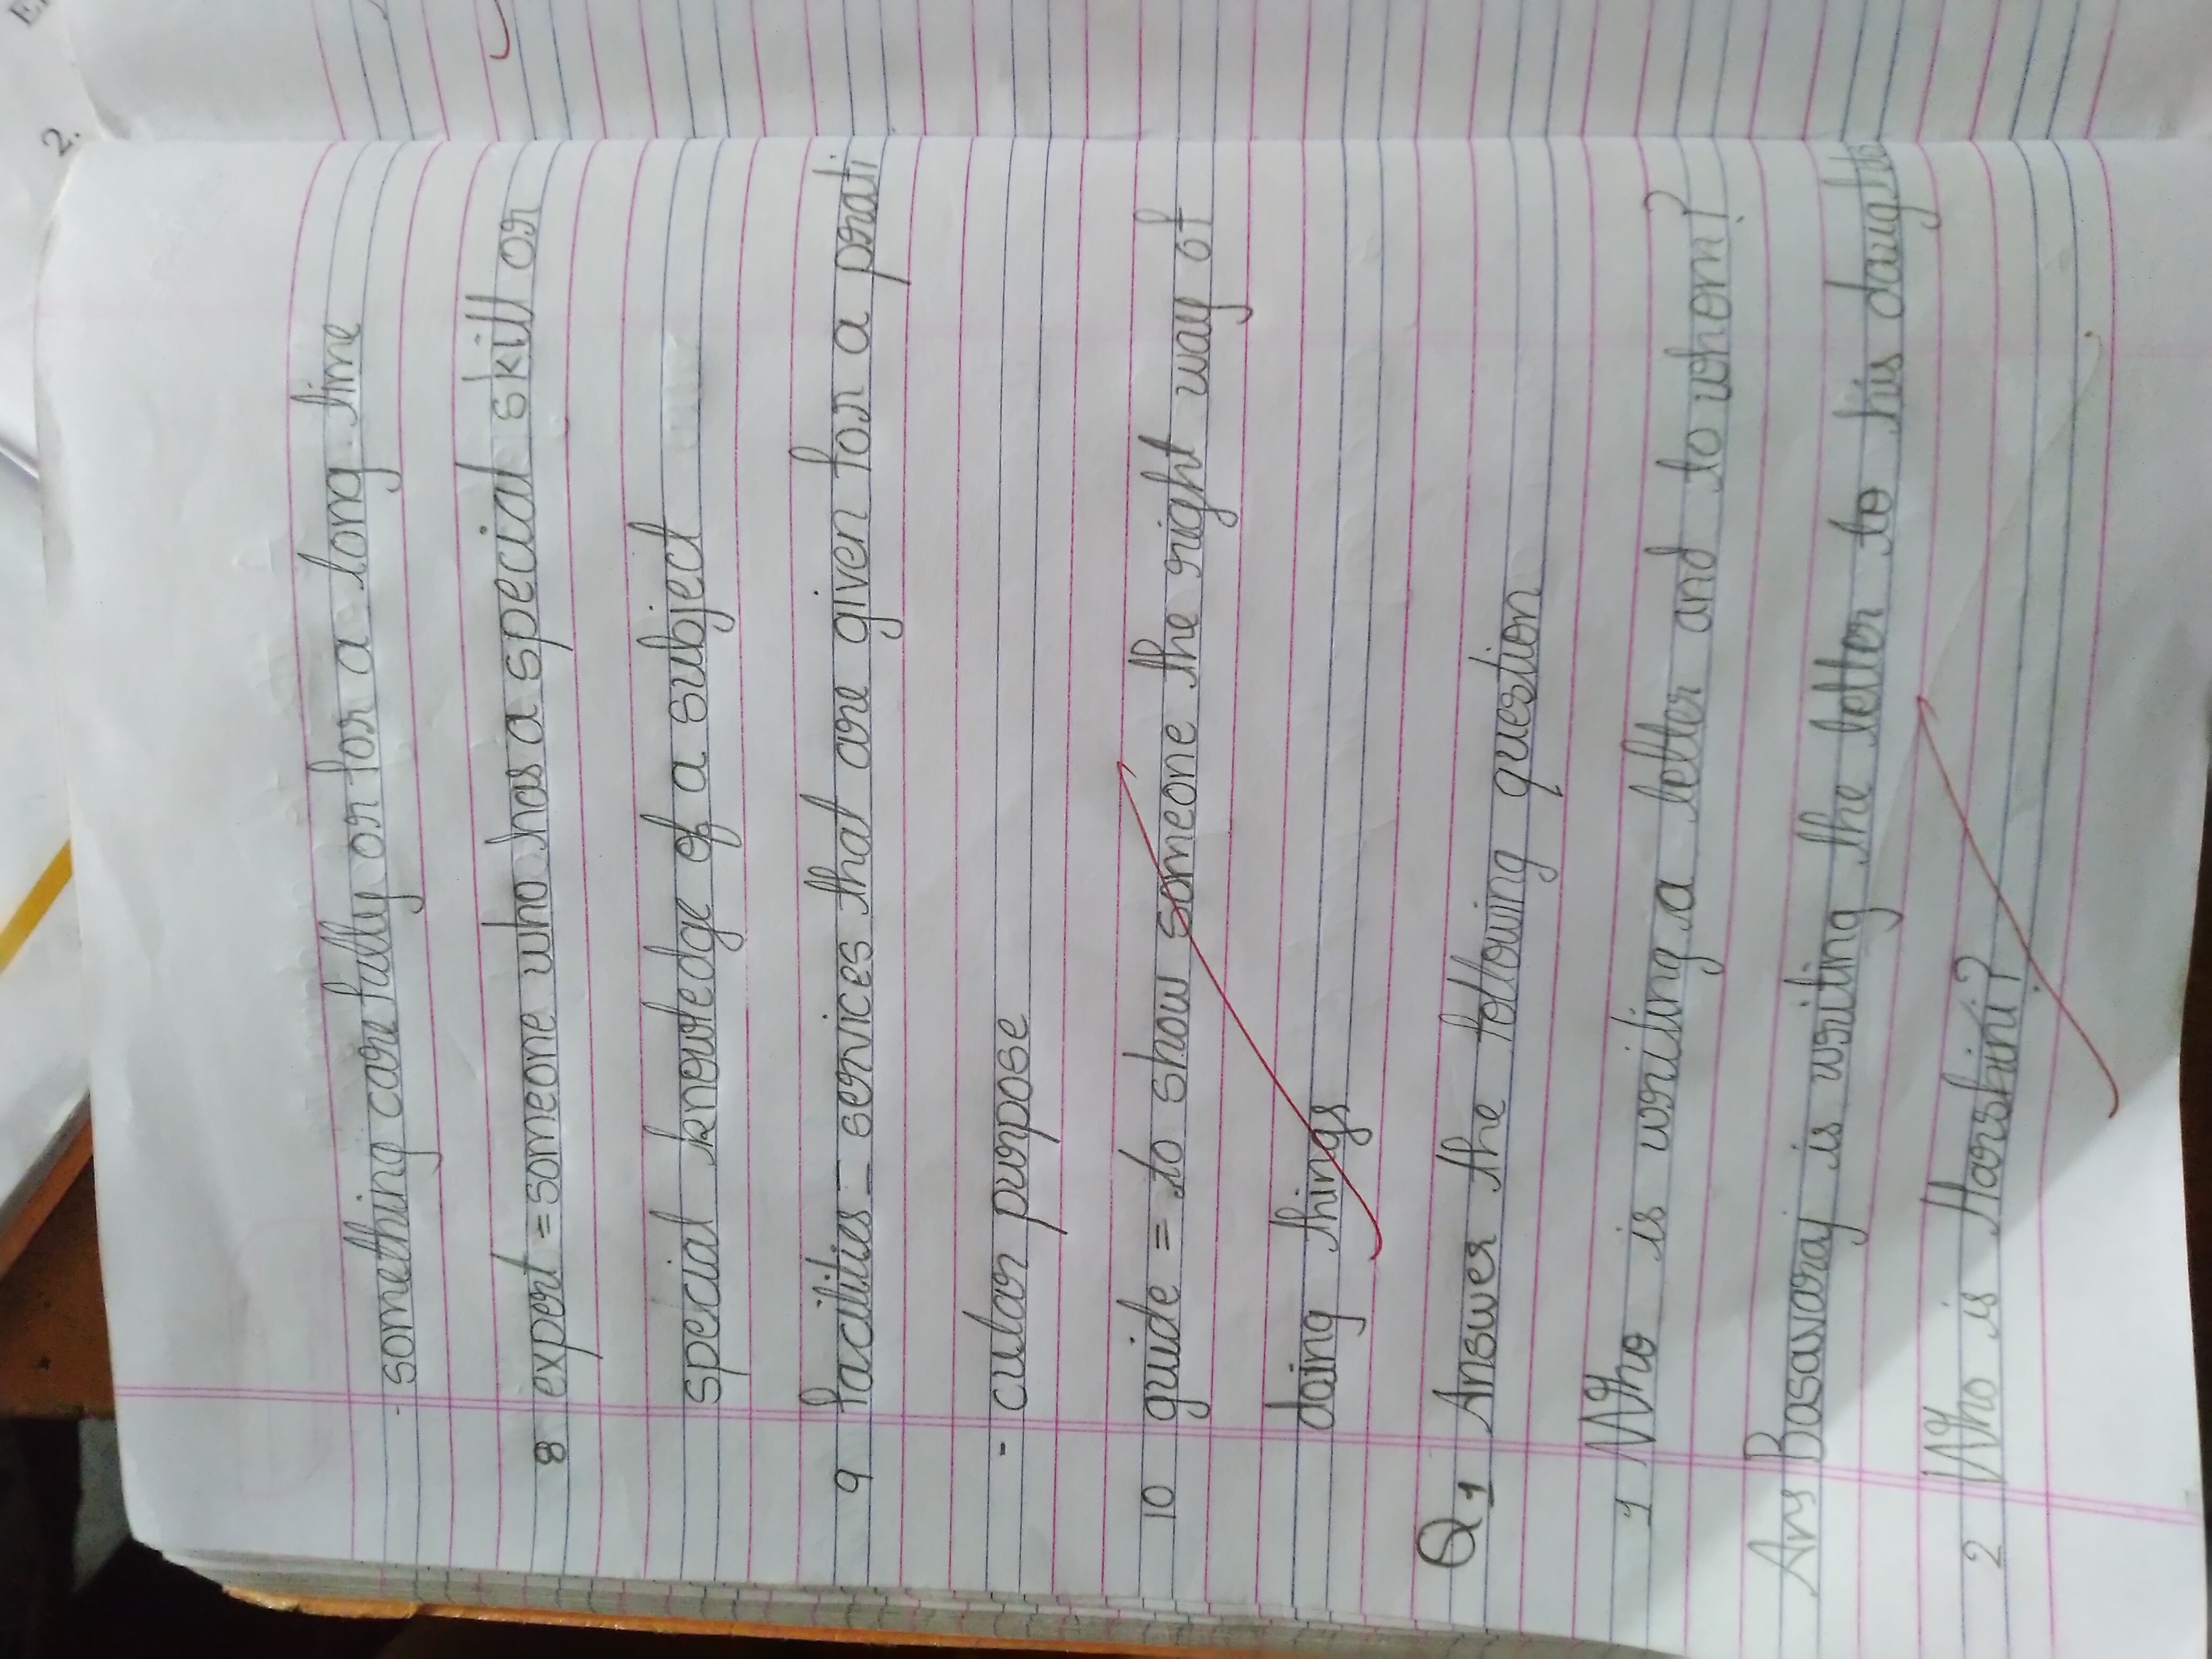 something carefully or for a long time
8 expert = someone who has a special skill or
special knowledge of a subject
9 facilities = services that are given for a prati
- cular purpose
10 guide = to show someone the right way of
doing things
Q1 Answer the following question
1 Who is writing a letter and to whom?
Ans Basavaraj is writing the letter to his daughte
2 Who is Harshini?
2.